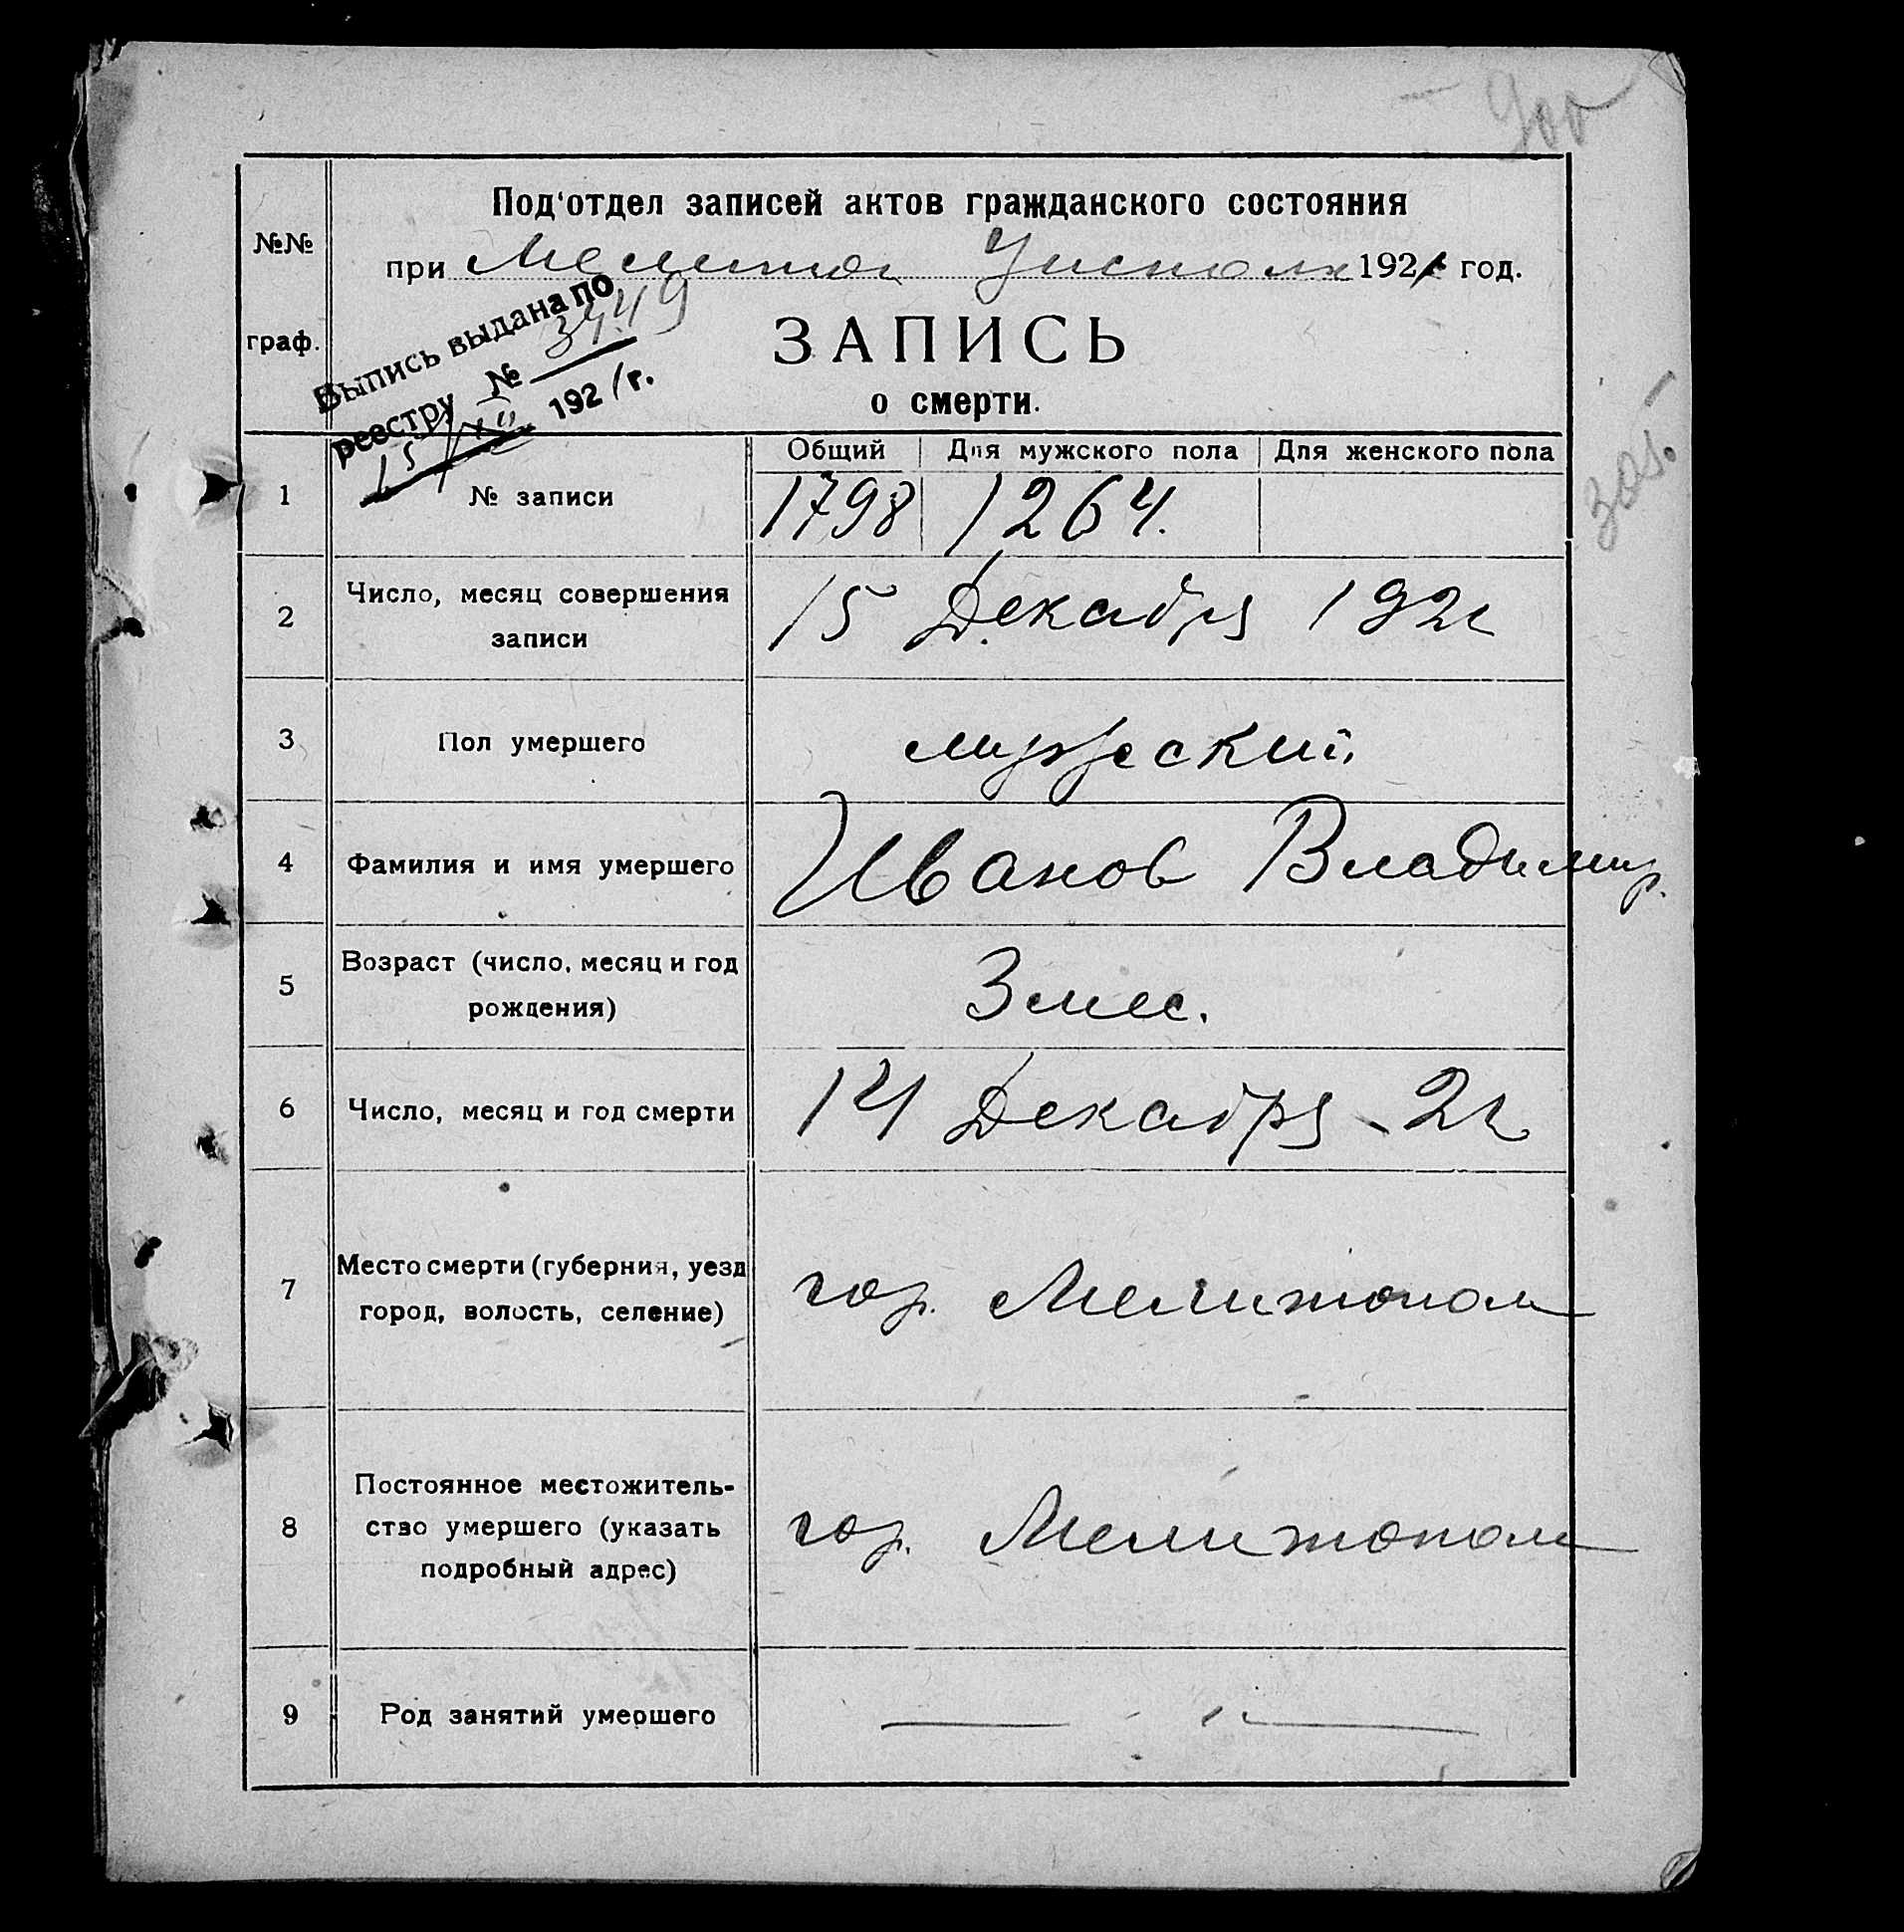 900
Под'отдел записей актов гражданского состояния
№№
при Мелитоп Уисполк 1921 год.
граф.
Выпись выдана по
реестру № 3449
15/XII 1921 г.
ЗАПИСЬ
о смерти.
305.
Общий Для мужского пола Для женского пола
1 № записи 1798 1264.
2 Число, месяц совершения
записи
15 Декабря 1921
3 Пол умершего мужеский
4 Фамилия и имя умершего Иванов Владимир.
5 Возраст (число, месяц и год
рождения)
3 мес.
6 Число, месяц и год смерти 14 Декабря - 21
7 Место смерти (губерния, уезд
город, волость, селение)
гор. Мелитополь
8 Постоянное местожитель-
ство умершего (указать
подробный адрес)
гор. Мелитополь
9 Род занятий умершего